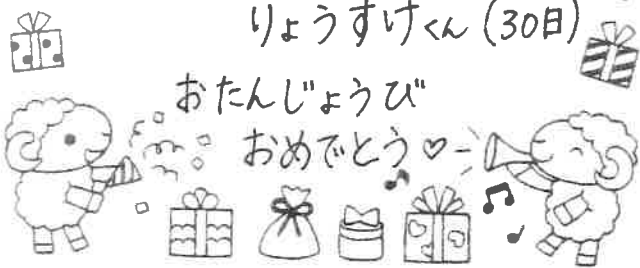 りょうすけくん(30日)
おたんじょうび
おめでとう♡